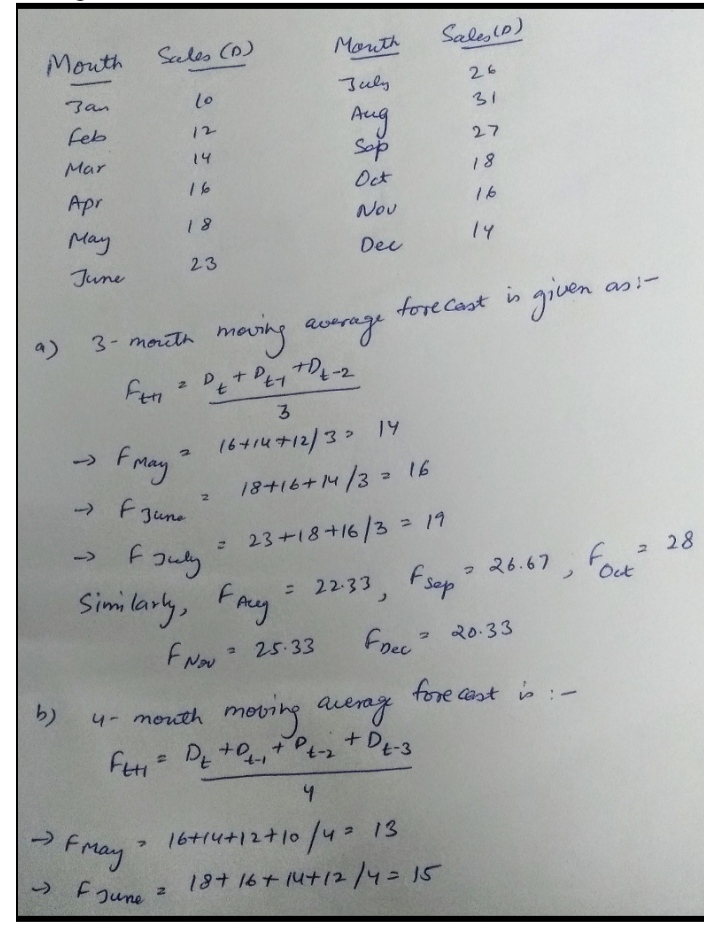 Month Sales (D) Month Sales (D)
Jan 10 July 26
Feb 12 Aug 31
Mar 14 Sep 27
Apr 16 Oct 18
May 18 Nov 16
June 23 Dec 14
a) 3-month moving average forecast is given as:-
F_{t+1} = D_t + D_{t-1} + D_{t-2}
3
→ F_{May} = 16+14+12/3 = 14
→ F_{June} = 18+16+14/3 = 16
→ F_{July} = 23+18+16/3 = 19
Similarly, F_{Aug} = 22.33, F_{Sep} = 26.67, F_{Oct} = 28
F_{Nov} = 25.33 F_{Dec} = 20.33
b) 4-month moving average forecast is :-
F_{t+1} = D_t + D_{t-1} + D_{t-2} + D_{t-3}
4
→ F_{May} = 16+14+12+10/4 = 13
→ F_{June} = 18+16+14+12/4 = 15